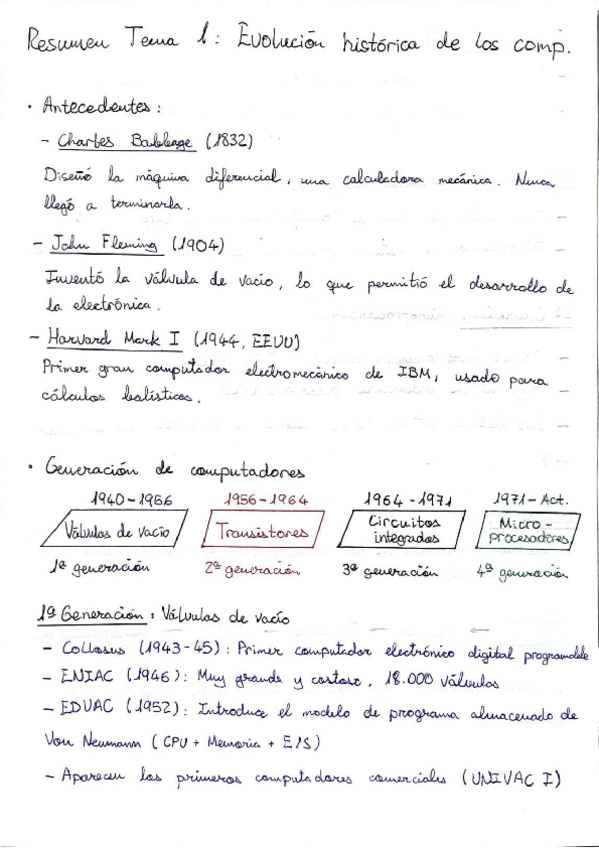 Resumen Tema 1: Evolución histórica de los comp.
· Antecedentes:
- Charles Babbeage (1832)
Diseñó la máquina diferencial, una calculadora mecánica. Nunca
llegó a terminarla.
- John Fleming (1904)
Inventó la válvula de vacío, lo que permitió el desarrollo de
la electrónica.
- Harvard Mark I (1944, EEUU)
Primer gran computador electromecánico de IBM, usado para
cálculos balísticos.
· Generación de computadores
1940-1956 1956-1964 1964-1971 1971-Act.
Válvulas de vacío Transistores Circuitos integrados Micro-procesadores
1ª generación 2ª generación 3ª generación 4ª generación
1ª Generación: Válvulas de vacío
- Collosus (1943-45): Primer computador electrónico digital programable
- ENIAC (1946): Muy grande y costoso, 18.000 válvulas
- EDVAC (1952): Introduce el modelo de programa almacenado de
Von Neumann (CPU + Memoria + E/S)
- Aparecen los primeros computadores comerciales (UNIVAC I)